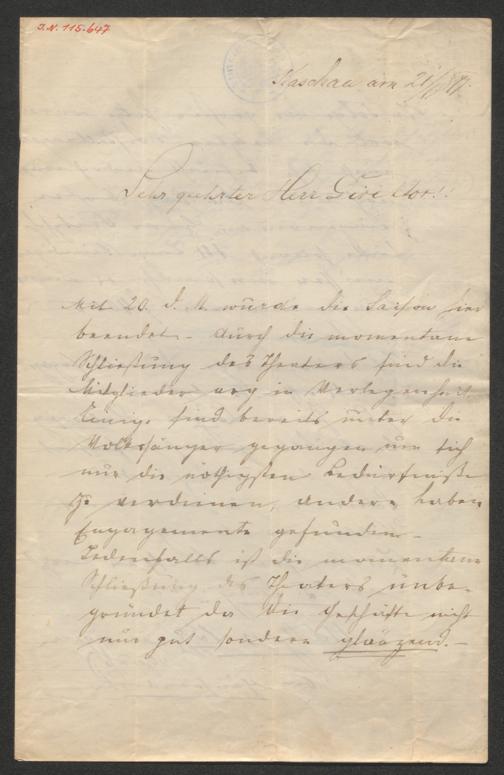 J.N. 115.647
Kaschau am 21/
Sehr geehrter Herr Direktor!!
Mit 20. d. M. wurde die Saison hier
beendet – durch die momentane
Schließung des Theaters sind die
Mitglieder arg in Verlegenheit
Einige sind bereits unter die
Volkssänger gegangen um sich
nur die nöthigsten Bedürfniße
zu verdienen, andere haben
Engagements gefunden –
Jedenfalls ist die momentane
Schließung des Theaters unbe-
gründet da die Geschäfte nicht
nur gut sondern glänzend. –